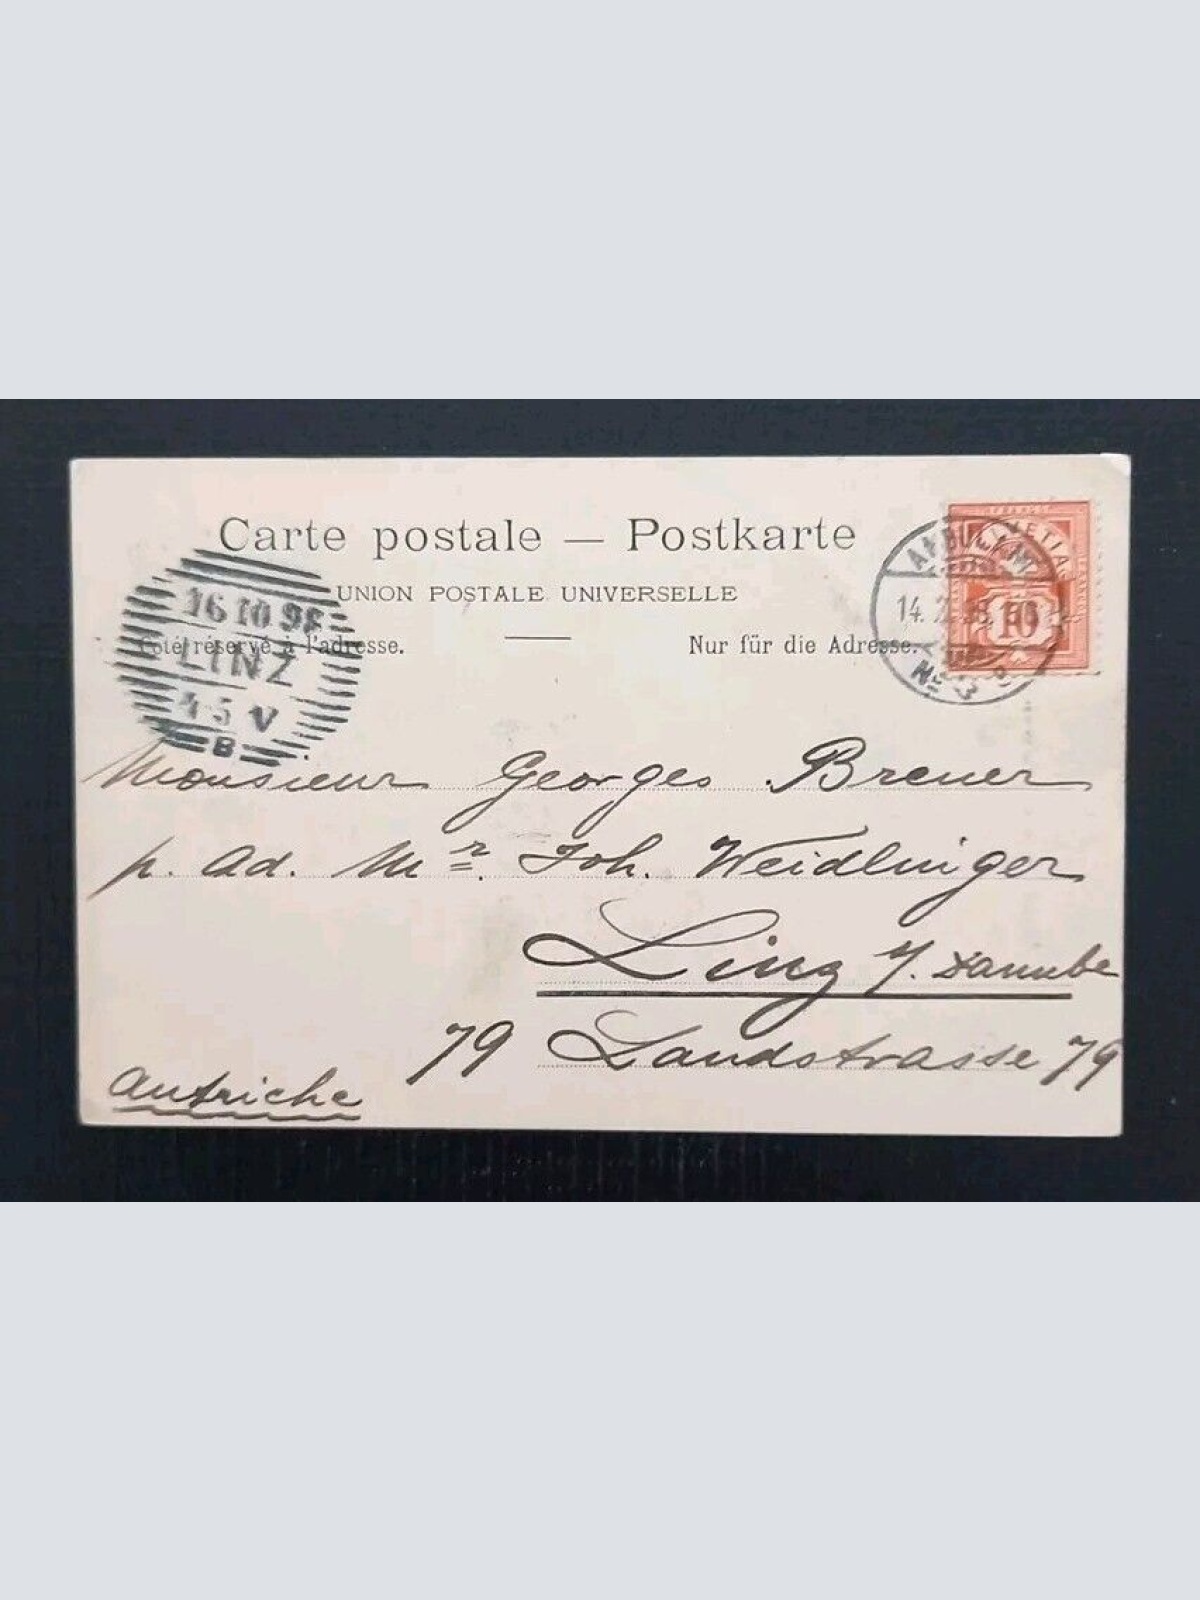 Carte postale — Postkarte
UNION POSTALE UNIVERSELLE
Coté réservé à l'adresse.
Nur für die Adresse.
16 10 98
LINZ
4-5 V
B
HELVETIA
10
AMBULANT
14.
No
Monsieur Georges Breuer
p. ad. Mr. Joh. Weidlinger
Linz s/. Danube
79 Landstrasse 79
Autriche